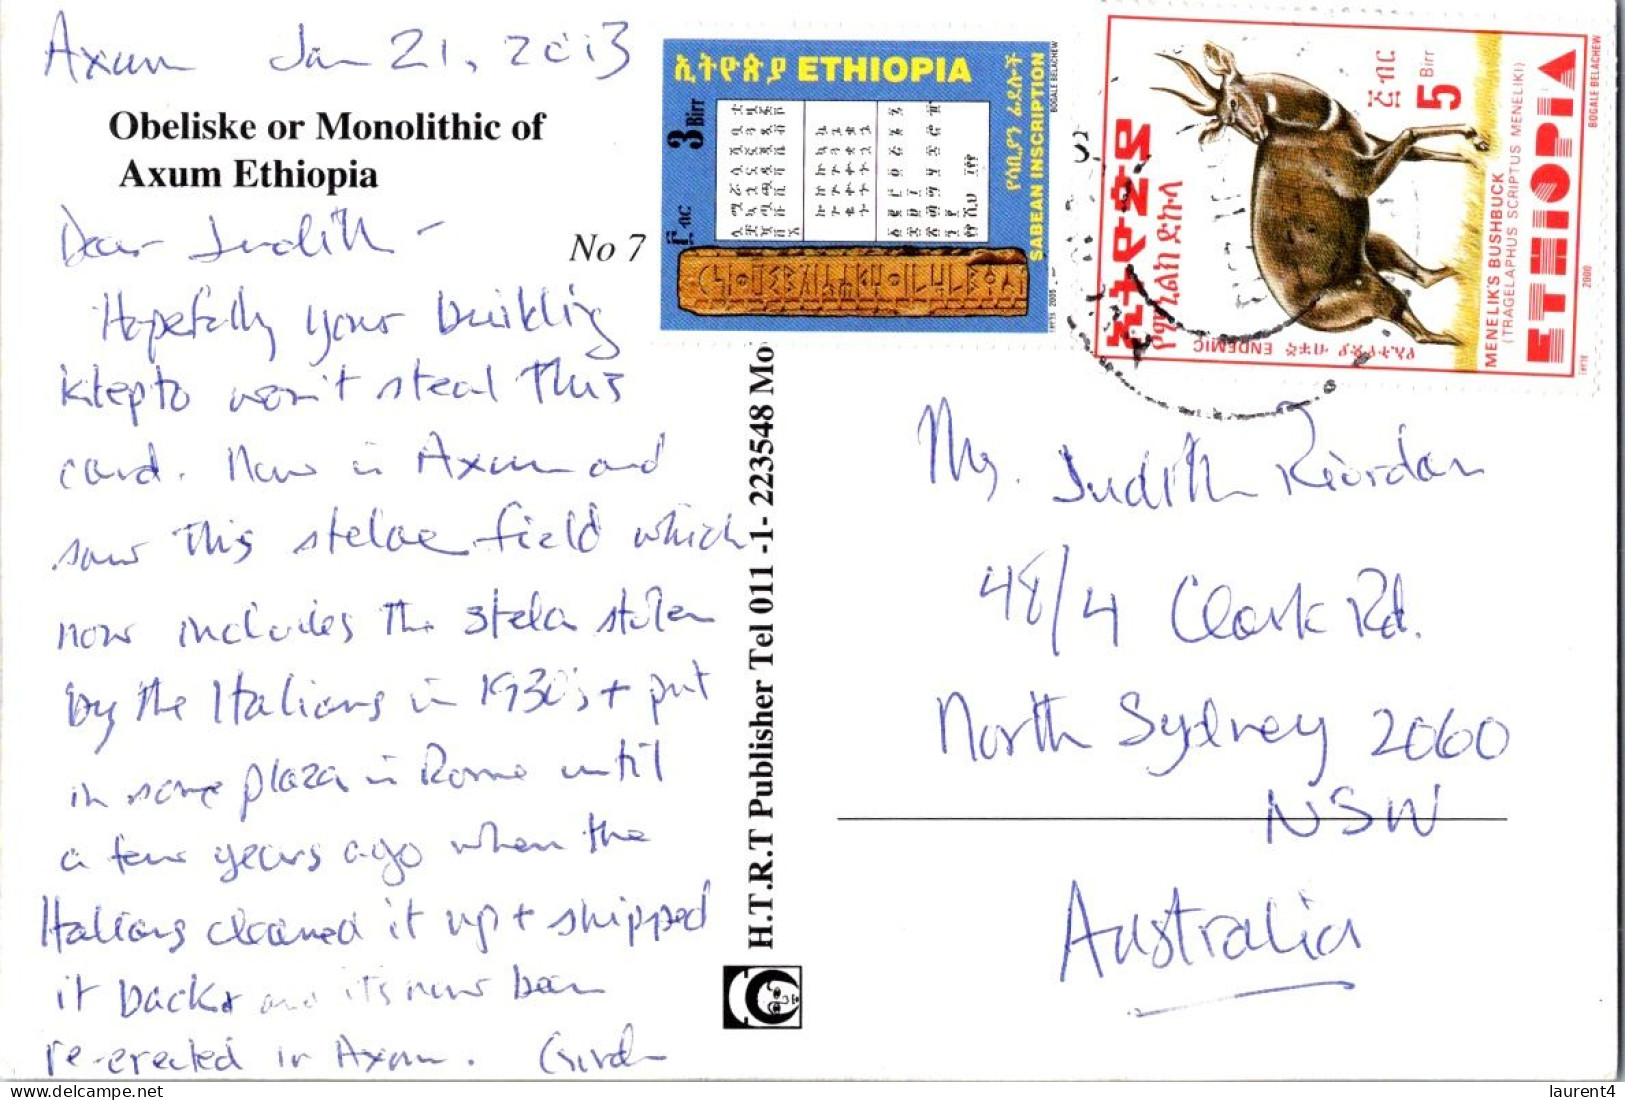 Axum Jan 21, 2013
Obeliske or Monolithic of
Axum Ethiopia
No 7
Dear Judith -
Hopefully your building
klepto won't steal this
card. Now in Axum and
saw this stelae field which
now includes the stela stolen
by the Italians in 1930's + put
in some plaza in Rome until
a few years ago when the
Italians cleaned it up + shipped
it back & and its now been
re-erected in Axum.
H.T.R.T Publisher Tel 011 -1- 223548 Mo
ኢትዮጵያ ETHIOPIA
3 Birr
ብር
SABEAN INSCRIPTION
BOGALE BELACHEW
ኢትዮጵያ
ETHIOPIA
5 Birr
ብር
የምኒልክ ድኩላ
MENELIK'S BUSHBUCK
(TRAGELAPHUS SCRIPTUS MENELIKI)
ENDEMIC
2000
BOGALE BELACHEW
Ms. Judith Riordan
48/4 Clark Rd.
North Sydney 2060
NSW
Australia
laurent4